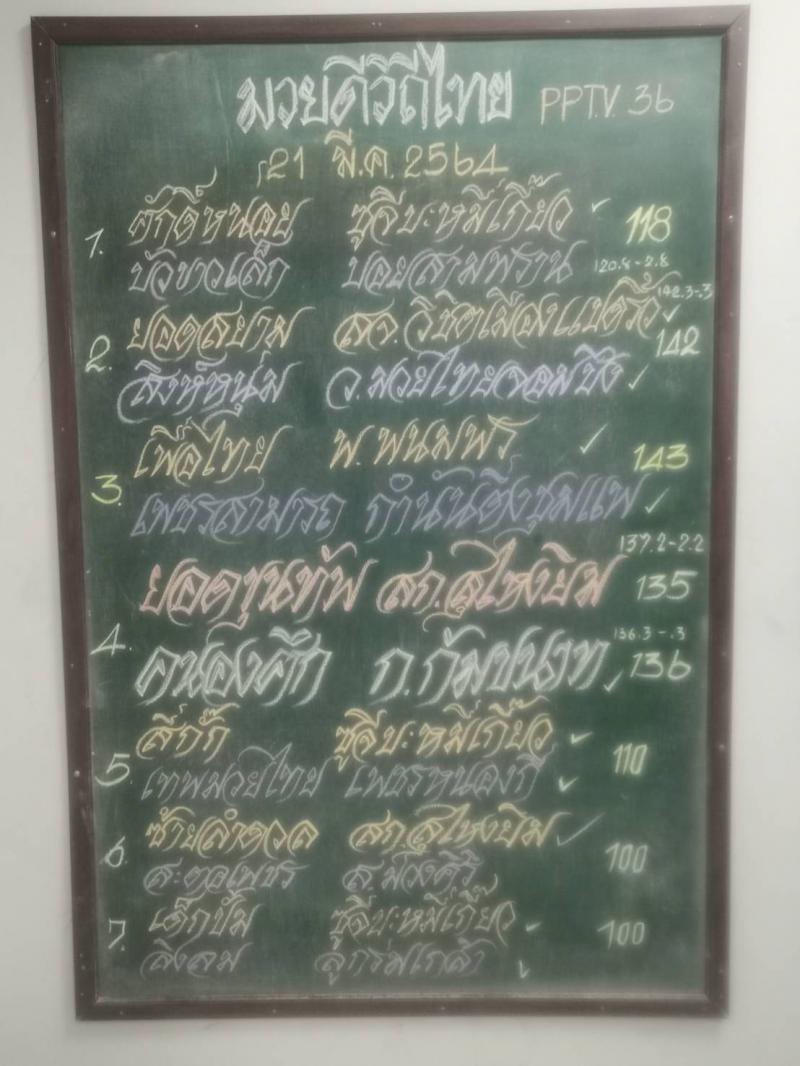 มวยดีวิถีไทย PPTV. 36
21 มี.ค. 2564
1. ศักดิ์หนอย ซูจีบะหมี่เกี๊ยว ✓ 118
บัวขาวเล็ก บอยสามพราน 120.8-2.8
142.3-.3
2. ยอดสยาม สจ.วิชิตเมืองแปดริ้ว ✓ 142
สิงห์หนุ่ม ว.มวยไทยจอมบึง ✓
3. เพื่อไทย พ.พนมพร ✓ 143
เพชรสามารถ กำนันติ่งชุมแพ ✓
137.2-2.2
ยอดขุนทัพ สก.สุไหงยิม 135
136.3-.3
4. คนองศึก ก.กัมปนาท ✓ 136
5. สีกั๊ก ซูจีบะหมี่เกี๊ยว ✓ 110
เทพมวยไทย เพชรหนองกี่ ✓
6. ซ้ายลำดวล สก.สุไหงยิม ✓ 100
สะตอเพชร ส.ม่วงคีรี
7. เด็กปั้ม ซูจีบะหมี่เกี๊ยว ✓ 100
ลิงลม ลูกร่มเกล้า ✓